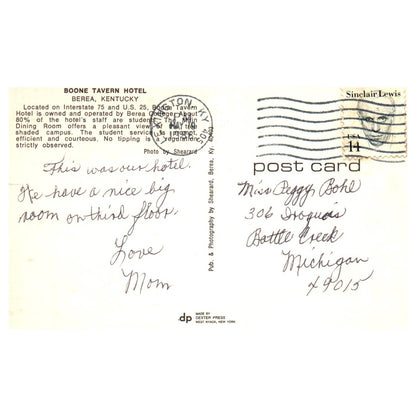 BOONE TAVERN HOTEL
BEREA, KENTUCKY
Located on Interstate 75 and U.S. 25, Boone Tavern
Hotel is owned and operated by Berea College. About
80% of the hotel's staff are students. The
Dining Room offers a pleasant view of the
shaded campus. The student service is prompt,
efficient and courteous. No tipping is a regulation
strictly observed.
Photo by Shearard
This was our hotel.
We have a nice big
room on third floor.
Love
Mom
Pub. & Photography by Shearard, Berea, Ky. 40403
dp
MADE BY
DEXTER PRESS
WEST NYACK, NEW YORK
LEXINGTON, KY 405
PM
MAY
Sinclair Lewis
USA
14
post card
Miss Peggy Bohl
306 Iroquois
Battle Creek
Michigan
49015